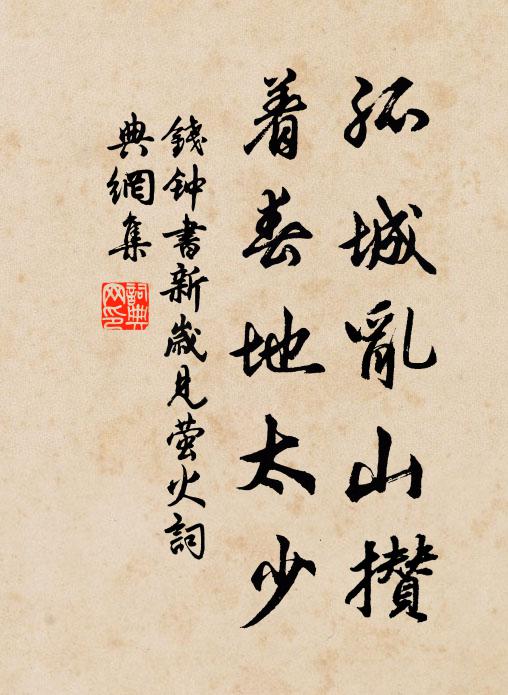 孤城亂山攢
着春地太少
錢钟書新歲見螢火詞
典網集
詞典網印